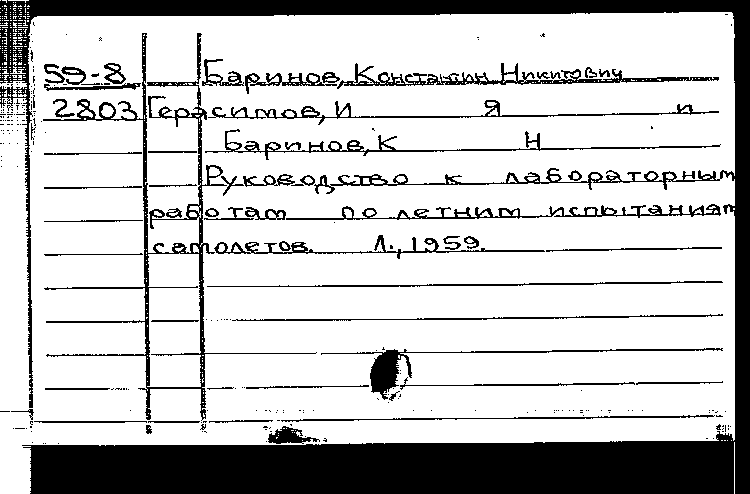 59-8 Баринов, Константин Никитович
2803 Герасимов, И Я и
Баринов, К Н
Руководство к лабораторным
работам по летним испытаниям
самолетов. Л., 1959.